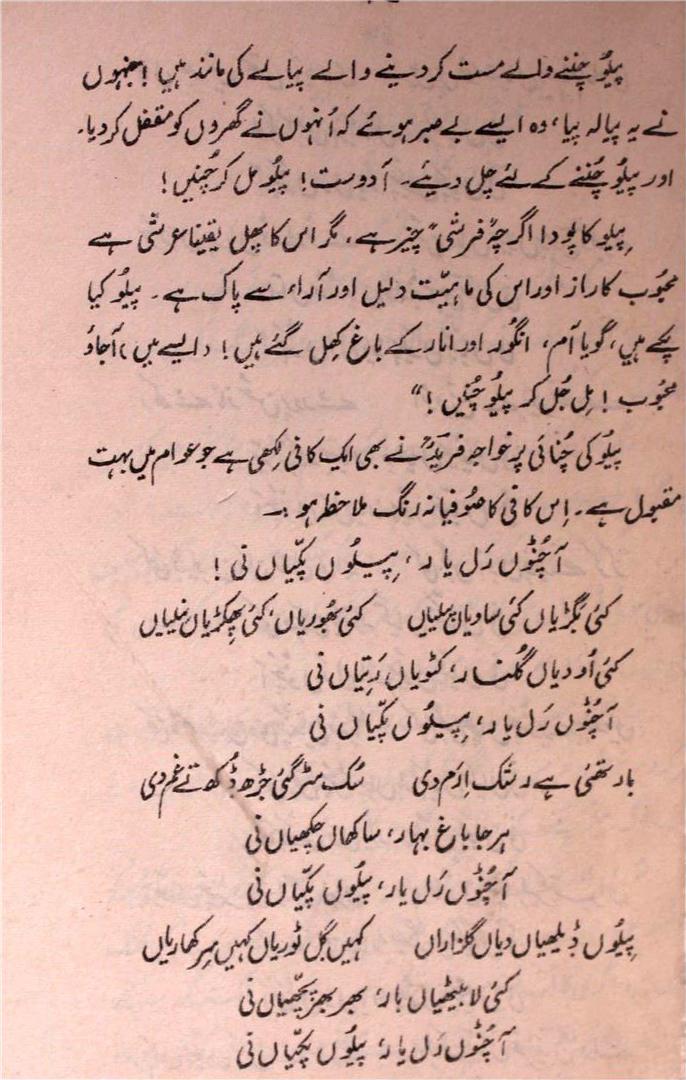 پیلُو چننے والے مست کر دینے والے پیالے کی مانند ہیں! جنہوں
نے یہ پیالہ پیا، وہ ایسے بے صبر ہوئے کہ اُنہوں نے گھروں کو مقفل کر دیا۔
اور پیلُو چُننے کے لئے چل دیئے۔ آ دوست! پیلُو مل کر چُنیں!
پیلو کا پودا اگرچہ "فرشی" چیز ہے، مگر اس کا پھل یقیناً عرشی ہے
محبُوب کا راز اور اس کی ماہیّت دلیل اور آراء سے پاک ہے۔ پیلُو کیا
پکے ہیں، گویا آم، انگُور اور انار کے باغ کھِل گئے ہیں! (ایسے میں) آ جاؤ
محبُوب! مِل جُل کر پیلُو چُنیں!"
پیلُو کی چُنائی پر خواجہ فریدؒ نے بھی ایک کافی لِکھی ہے جو عوام میں بہت
مقبول ہے۔ اِس کافی کا صُوفیانہ رنگ ملاحظہ ہو:۔
آ چُنُوں رَل یار، پِیلُوں پکیّاں نی!
کئی بگڑیاں کئی ساویاں پیلیاں کئی بھُوریاں، کئی پھِکڑیاں نیلیاں
کئی اُودیاں گُلنار، کٹویاں رَتیاں نی
آ چُنُوں رَل یار، پِیلُوں پکیّاں نی
بار تھئی ہے رشک اِرَم دی سُک سڑ گئی جڑھ ڈُکھ تے غم دی
ہر جا باغ بہار، ساکھاں چکھیاں نی
آ چُنُوں رَل یار، پیلُوں پکیّاں نی
پِیلُوں ڈیلھیاں دیاں گلزاراں کہیں گل ٹوریاں کہیں سِر کھاریاں
کئی لا بیٹھیاں بار، بھر بھر پچھّیاں نی
آ چُنُوں رَل یار، پیلُوں پکیّاں نی